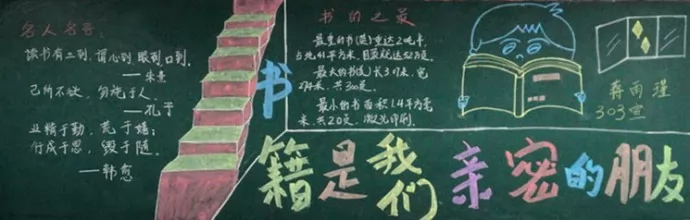 名人名言:
读书有三到,谓心到 眼到 口到.
——朱熹
己所不欲, 勿施于人.
——孔子
业精于勤, 荒于嬉;
行成于思, 毁于随.
——韩愈
书的之最
最重的书(英)重达2吨半,
占地
最大的书(美)长3
共300页.
最小的书面积1.4平方毫
米,共20页,
书籍是我们亲密的朋友
蒋雨瑾
303宣